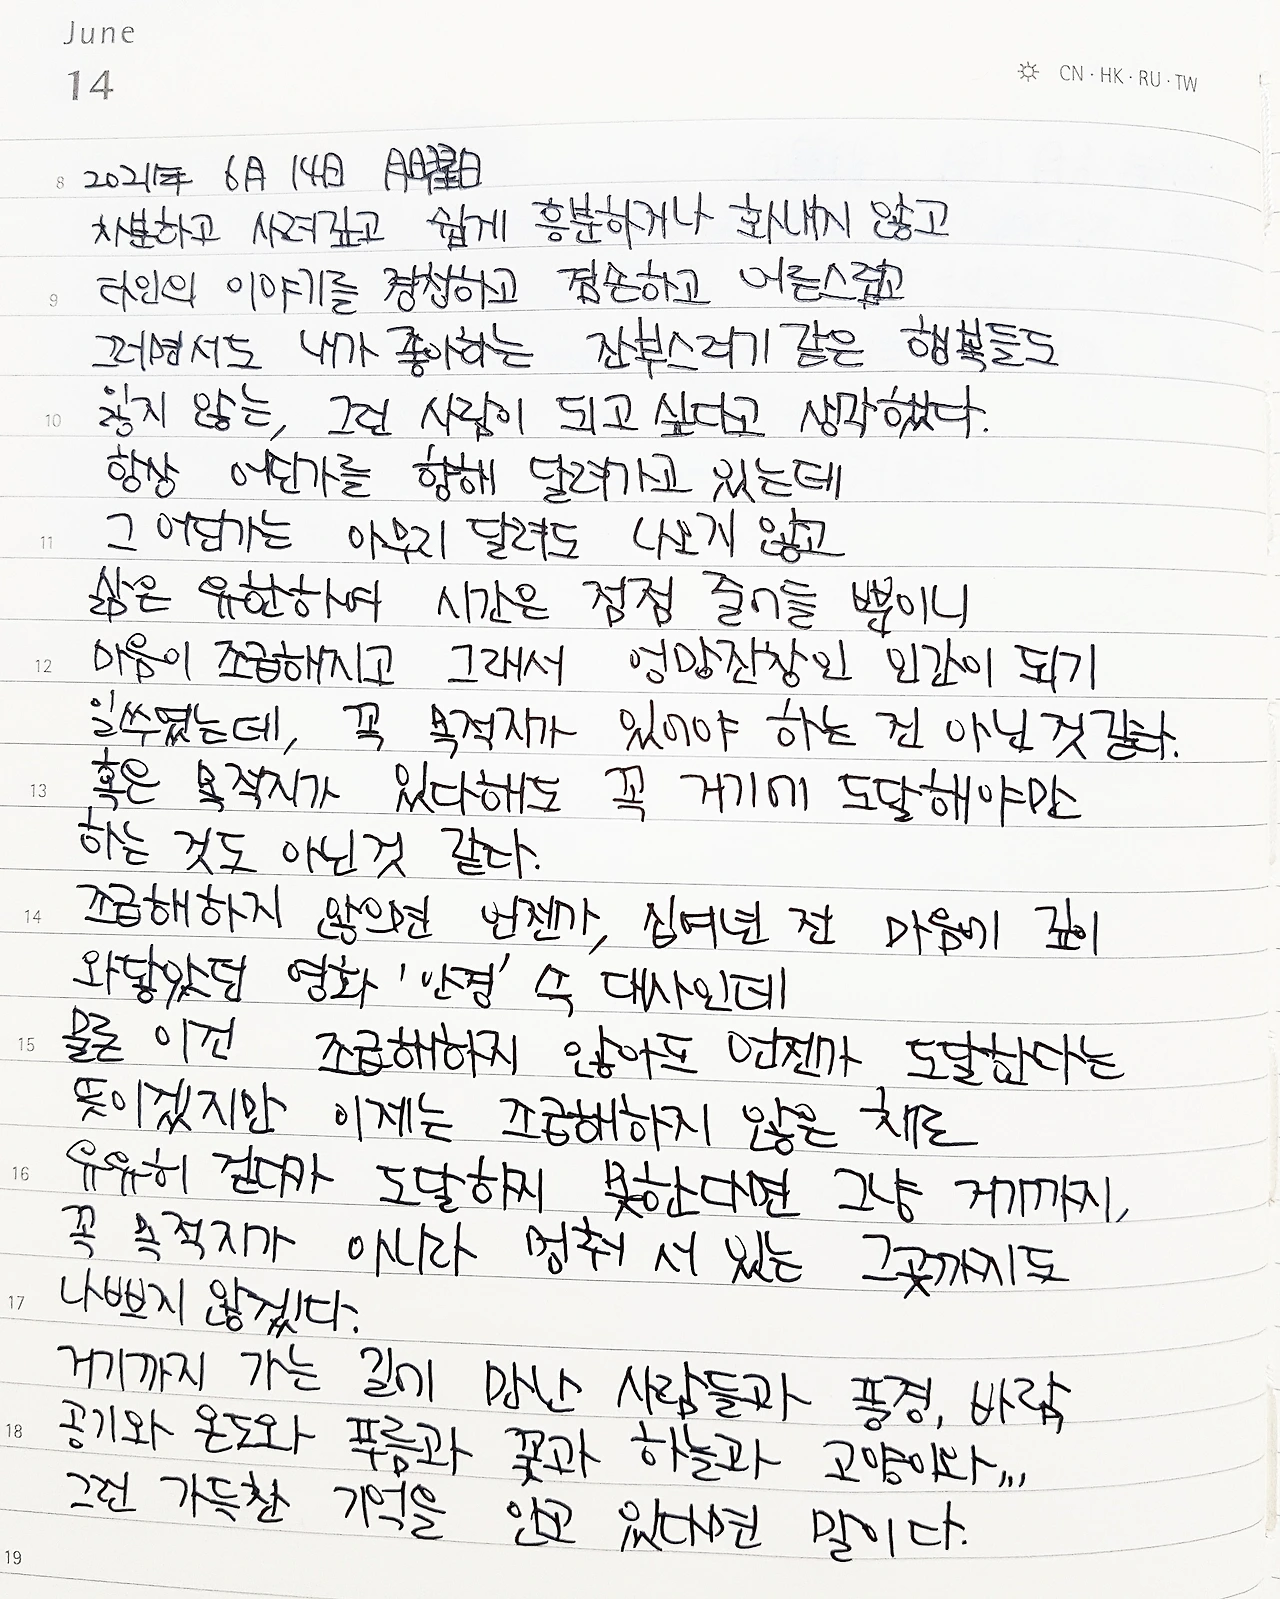 June
14
CN · HK · RU · TW
8 2021年 6月 14日 月曜日
차분하고 사려깊고 쉽게 흥분하거나 화내지 않고
9 타인의 이야기를 경청하고 겸손하고 어른스럽고
그러면서도 내가 좋아하는 잔부스러기 같은 행복들도
10 잃지 않는, 그런 사람이 되고 싶다고 생각했다.
항상 어딘가를 향해 달려가고 있는데
11 그 어딘가는 아무리 달려도 나오지 않고
삶은 유한하여 시간은 점점 줄어들 뿐이니
12 마음이 조급해지고 그래서 엉망진창인 인간이 되기
일쑤였는데, 꼭 목적지가 있어야 하는 건 아닌 것 같다.
13 혹은 목적지가 있다해도 꼭 거기에 도달해야만
하는 것도 아닌것 같다.
14 조급해하지 않으면 언젠가, 십여년 전 마음에 깊이
와닿았던 영화 '안경' 속 대사인데
15 물론 이건 조급해하지 않아도 언젠가 도달한다는
뜻이겠지만 이제는 조급해하지 않은 채로
16 유유히 걷다가 도달하지 못한다면 그냥 거기까지,
꼭 목적지가 아니라 멈춰 서 있는 그곳까지도
17 나쁘지 않겠다.
거기까지 가는 길에 만난 사람들과 풍경, 바람
18 공기와 온도와 푸름과 꽃과 하늘과 고양이와...
그런 가득찬 기억을 안고 있다면 말이다.
19